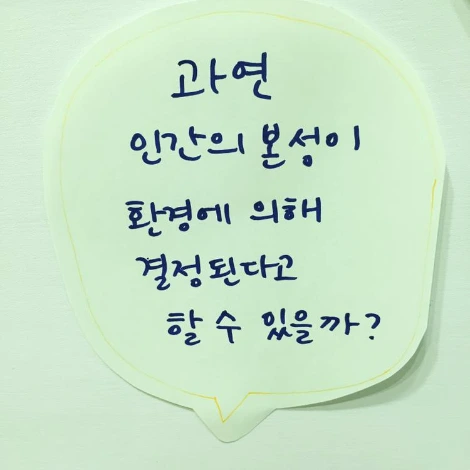 과연
인간의 본성이
환경에 의해
결정된다고
할 수 있을까?